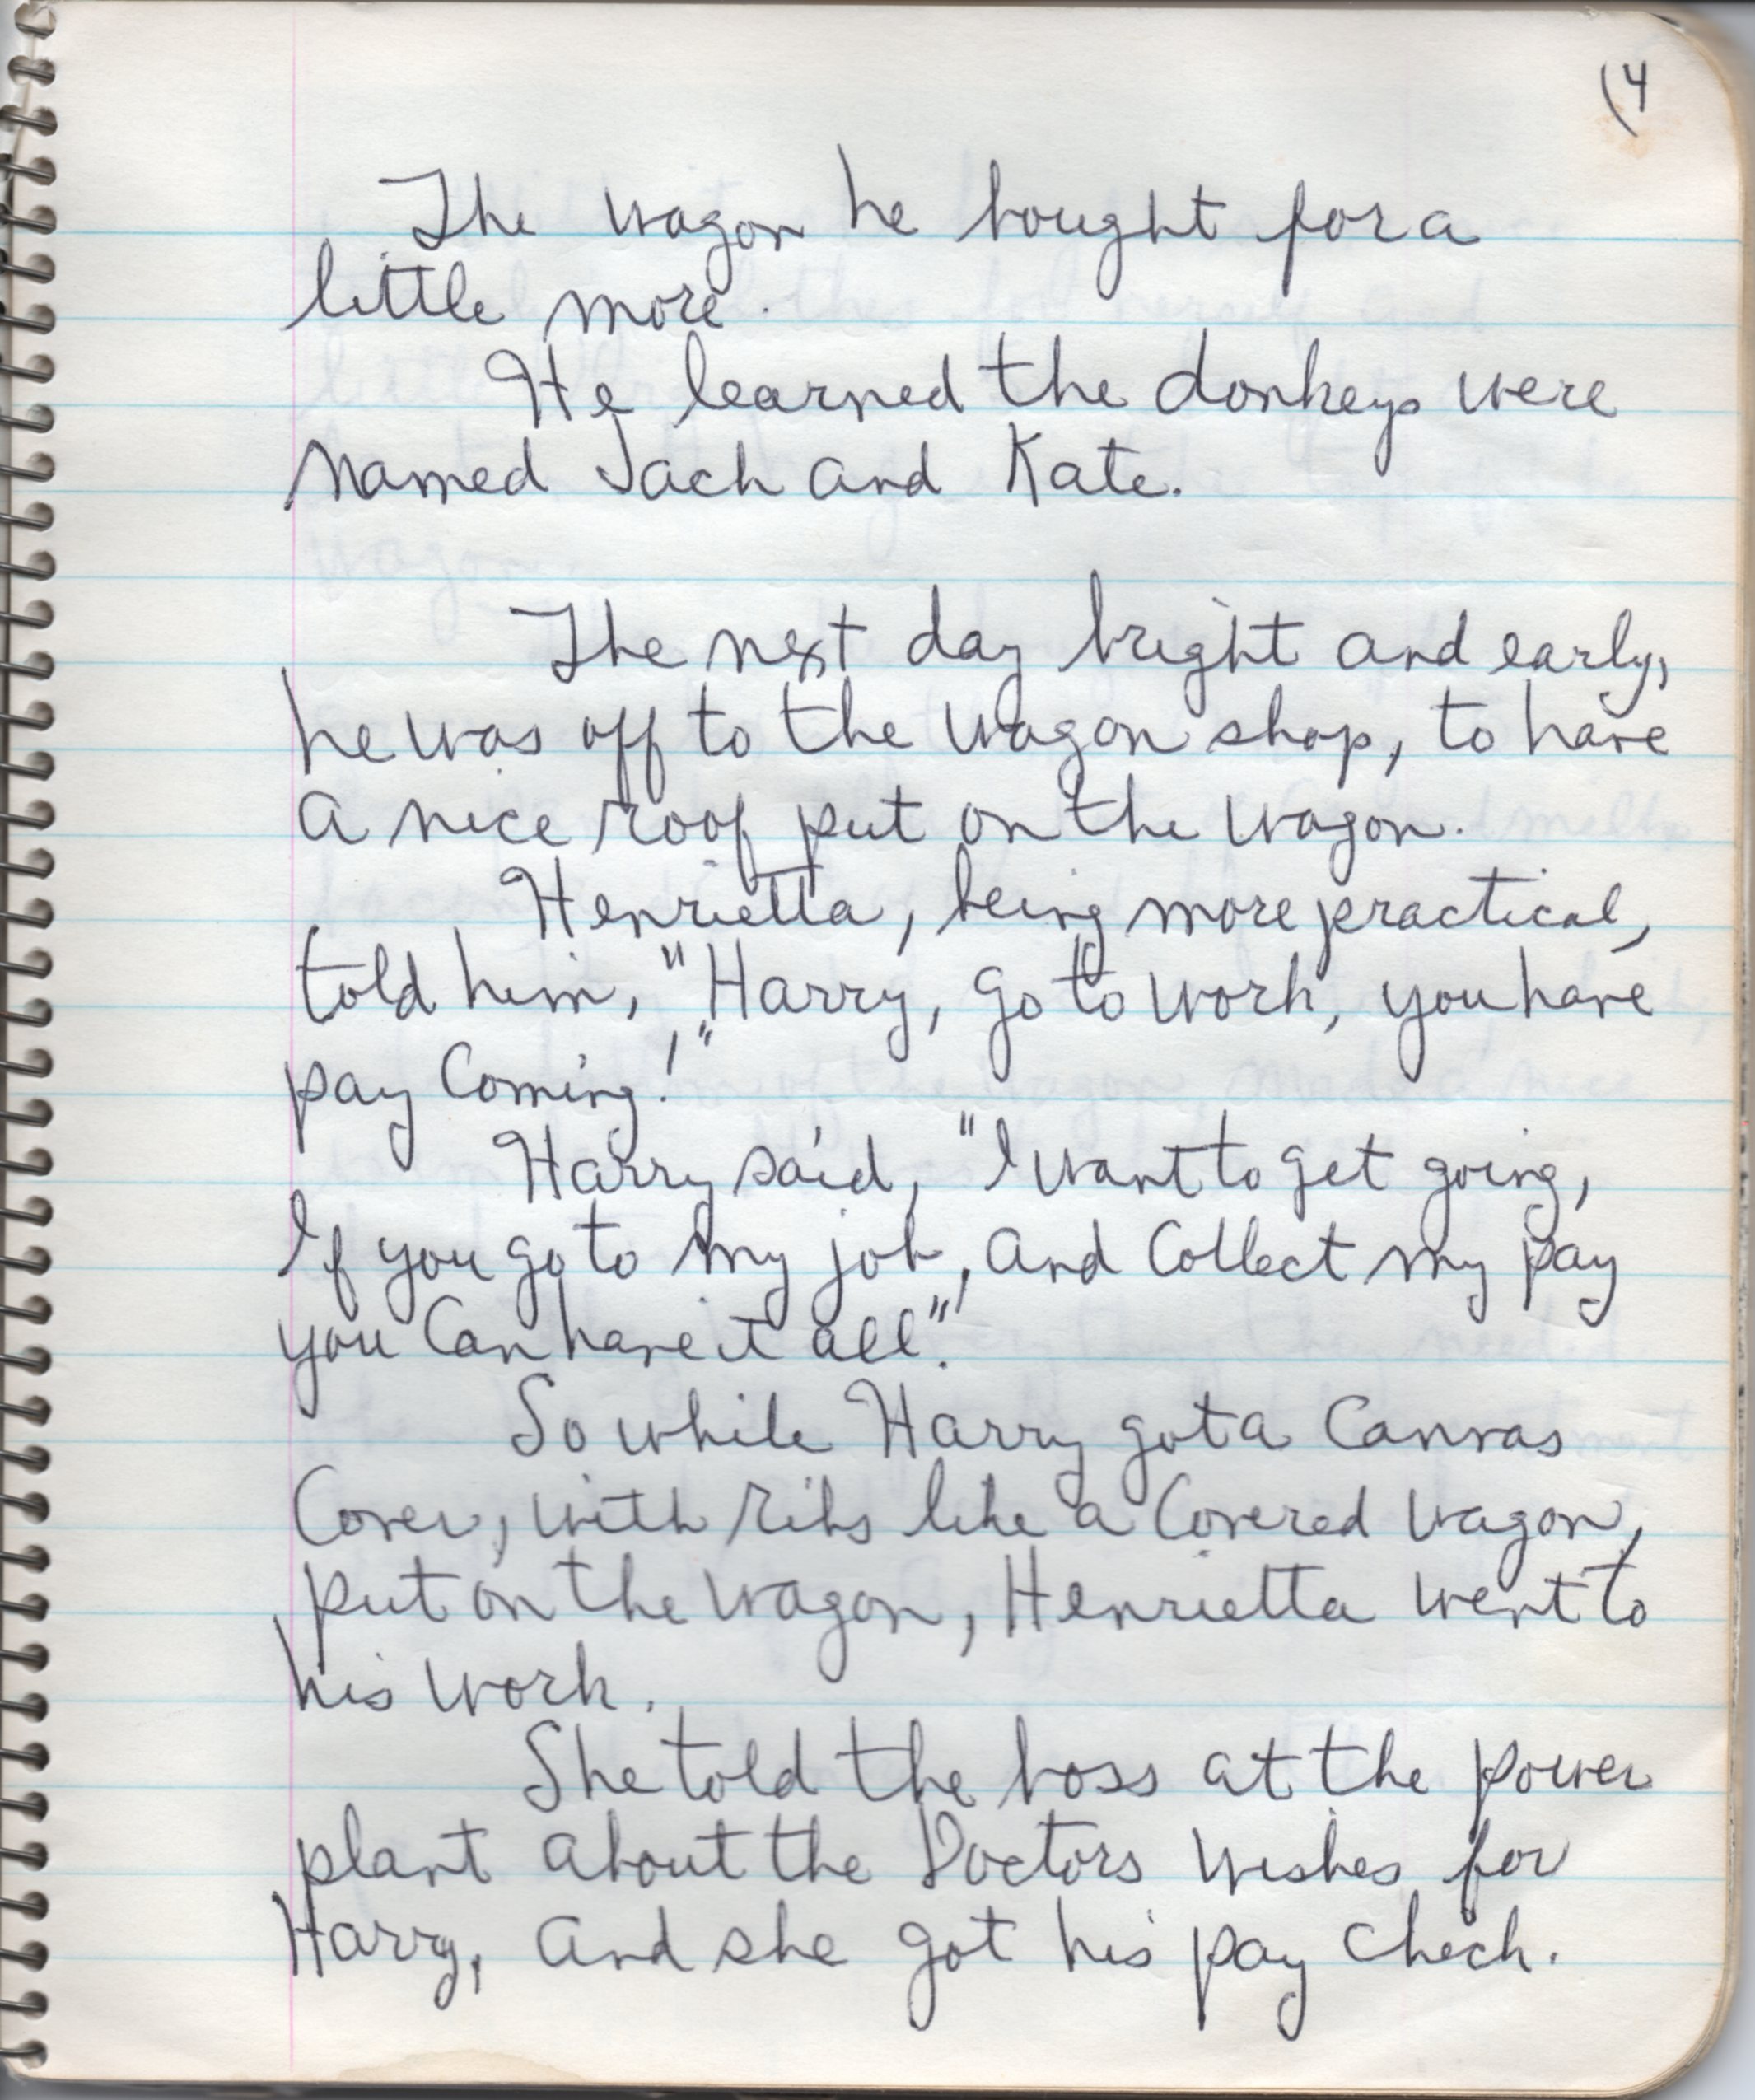 (4
The wagon he bought for a
little more.
He learned the donkeys were
named Jack and Kate.
The next day bright and early,
he was off to the wagon shop, to have
a nice roof put on the wagon.
Henrietta, being more practical,
told him, "Harry, go to work, you have
pay coming!"
Harry said, "I want to get going,
If you go to my job, and collect my pay
you can have it all".
So while Harry got a canvas
cover, with ribs like a covered wagon,
put on the wagon, Henrietta went to
his work.
She told the boss at the power
plant about the Doctors wishes for
Harry, and she got his pay check.